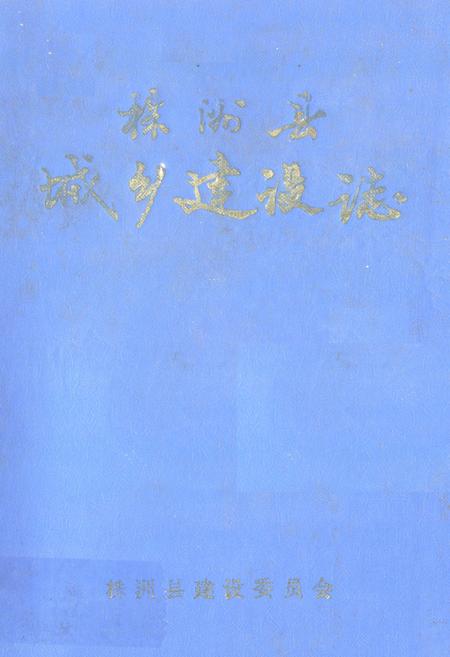 株洲县
城乡建设志
株洲县建设委员会